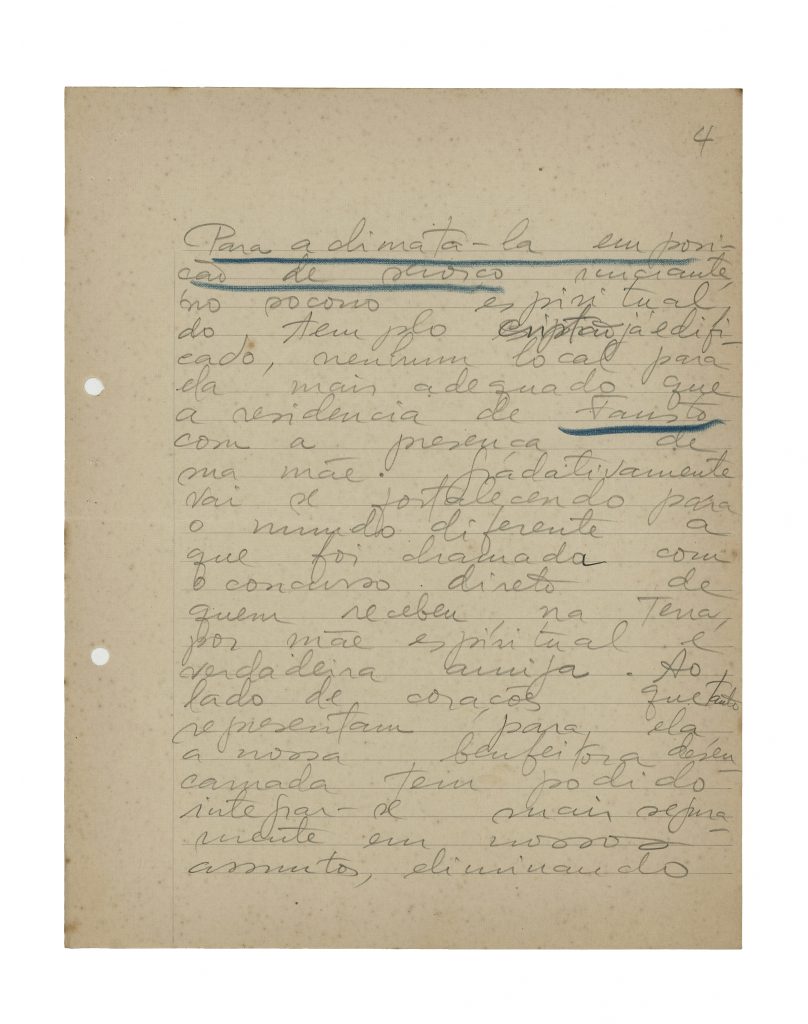 4
Para aclimatá-la em posi-
ção de serviço iniciante,
no socorro espiritual,
do templo cristão já edifi-
cado, nenhum local para
ela mais adequado que
a residencia de Fausto
com a presença de
sua mãe. Gradativamente
vai se fortalecendo para
o mundo diferente a
que foi chamada com
o concurso direto de
quem recebeu, na Terra,
por mãe espiritual e
verdadeira amiga. Ao
lado de corações que tanto
representam para ela,
a nossa benfeitora desen-
carnada tem podido
integrar-se mais segura-
mente em nossos
assuntos, eliminando